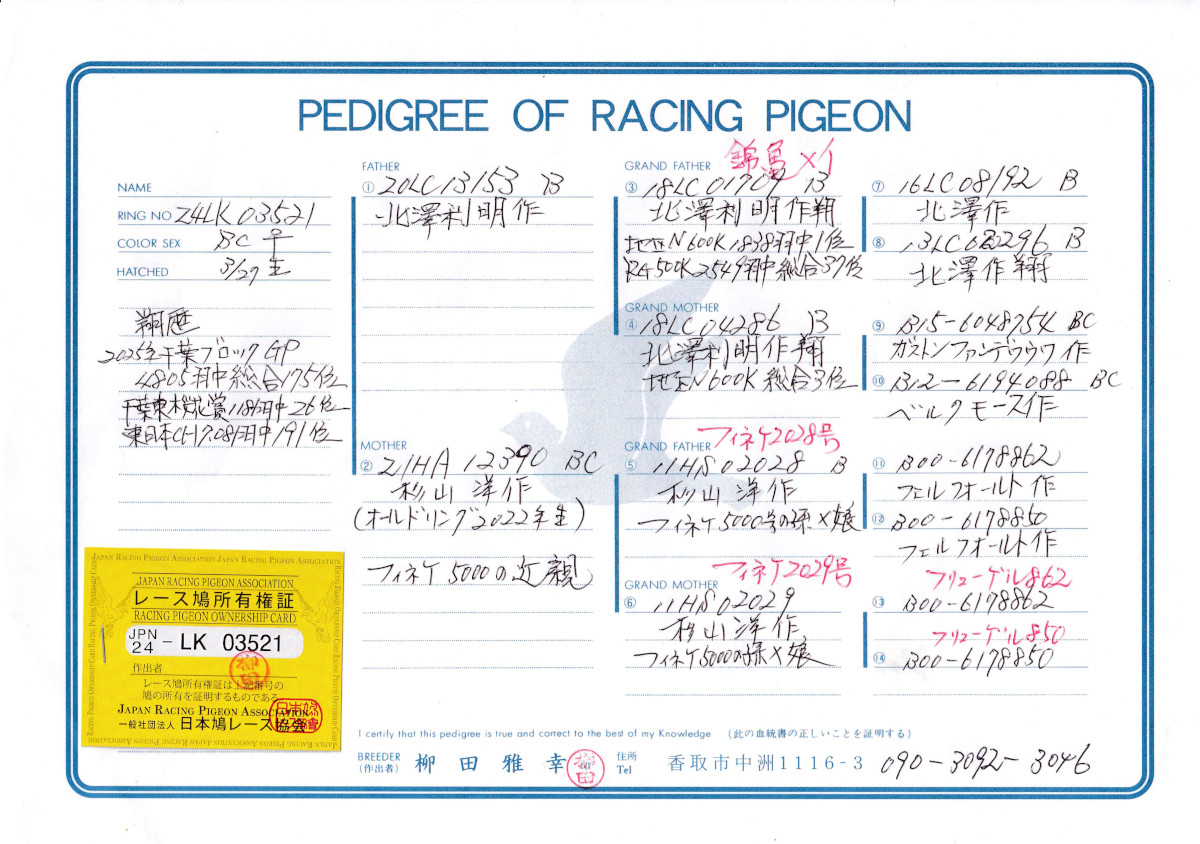 PEDIGREE OF RACING PIGEON
NAME
RING NO 24LK03521
COLOR SEX BC ♀
HATCHED 3/27生
翔歴
2025年千葉ブロックGP
4805羽中総合175位
千葉東桜花賞1186羽中26位
東日本CH7,081羽中191位
FATHER
① 20LC13153 B
北澤利明作
MOTHER
② 21HA12390 BC
杉山洋作
(オールドリング2022年生)
フィネケ5000の近親
GRAND FATHER
③ 18LC01709 B
北澤利明作翔
地区N600K1838羽中1位
Rg500K2549羽中総合37位
GRAND MOTHER
④ 18LC04286 B
北澤利明作翔
地区N600K総合3位
GRAND FATHER フィネケ2028号
⑤ 11HS02028 B
杉山洋作
フィネケ5000号の孫×娘
GRAND MOTHER フィネケ2029号
⑥ 11HS02029
杉山洋作
フィネケ5000の孫×娘
⑦ 16LC08192 B
北澤作
⑧ 13LC 296 B
北澤作翔
⑨ B15-6048754 BC
ガストンファンデウワウ作
⑩ B12-6194088 BC
ベルクモース作
⑪ B00-6178862
フェルフォールト作
⑫ B00-6178850
フェルフォールト作
フリューゲル862
⑬ B00-6178862
フリューゲル850
⑭ B00-6178850
JAPAN RACING PIGEON ASSOCIATION
レース鳩所有権証
RACING PIGEON OWNERSHIP CARD
JPN 24 - LK 03521
作出者
柳田
レース鳩所有権証は上記番号の
鳩の所有を証明するものである。
JAPAN RACING PIGEON ASSOCIATION
一般社団法人 日本鳩レース協会
I certify that this pedigree is true and correct to the best of my Knowledge (此の血統書の正しいことを証明する)
BREEDER (作出者) 柳田雅幸 柳田 住所 Tel 香取市中洲1116-3 090-3092-3046